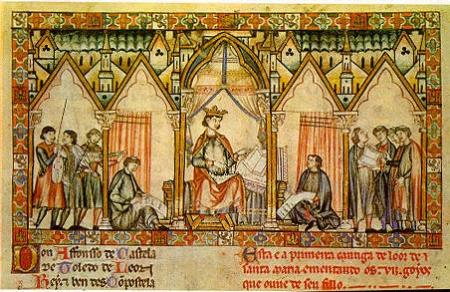 Don Affonsso de Castela
de Toledo de Leon
Rey e ben des Conpostela
Esta e a primeira cantiga de loor de
santa maria ementando os .VII. goyos
que ouve de seu fillo